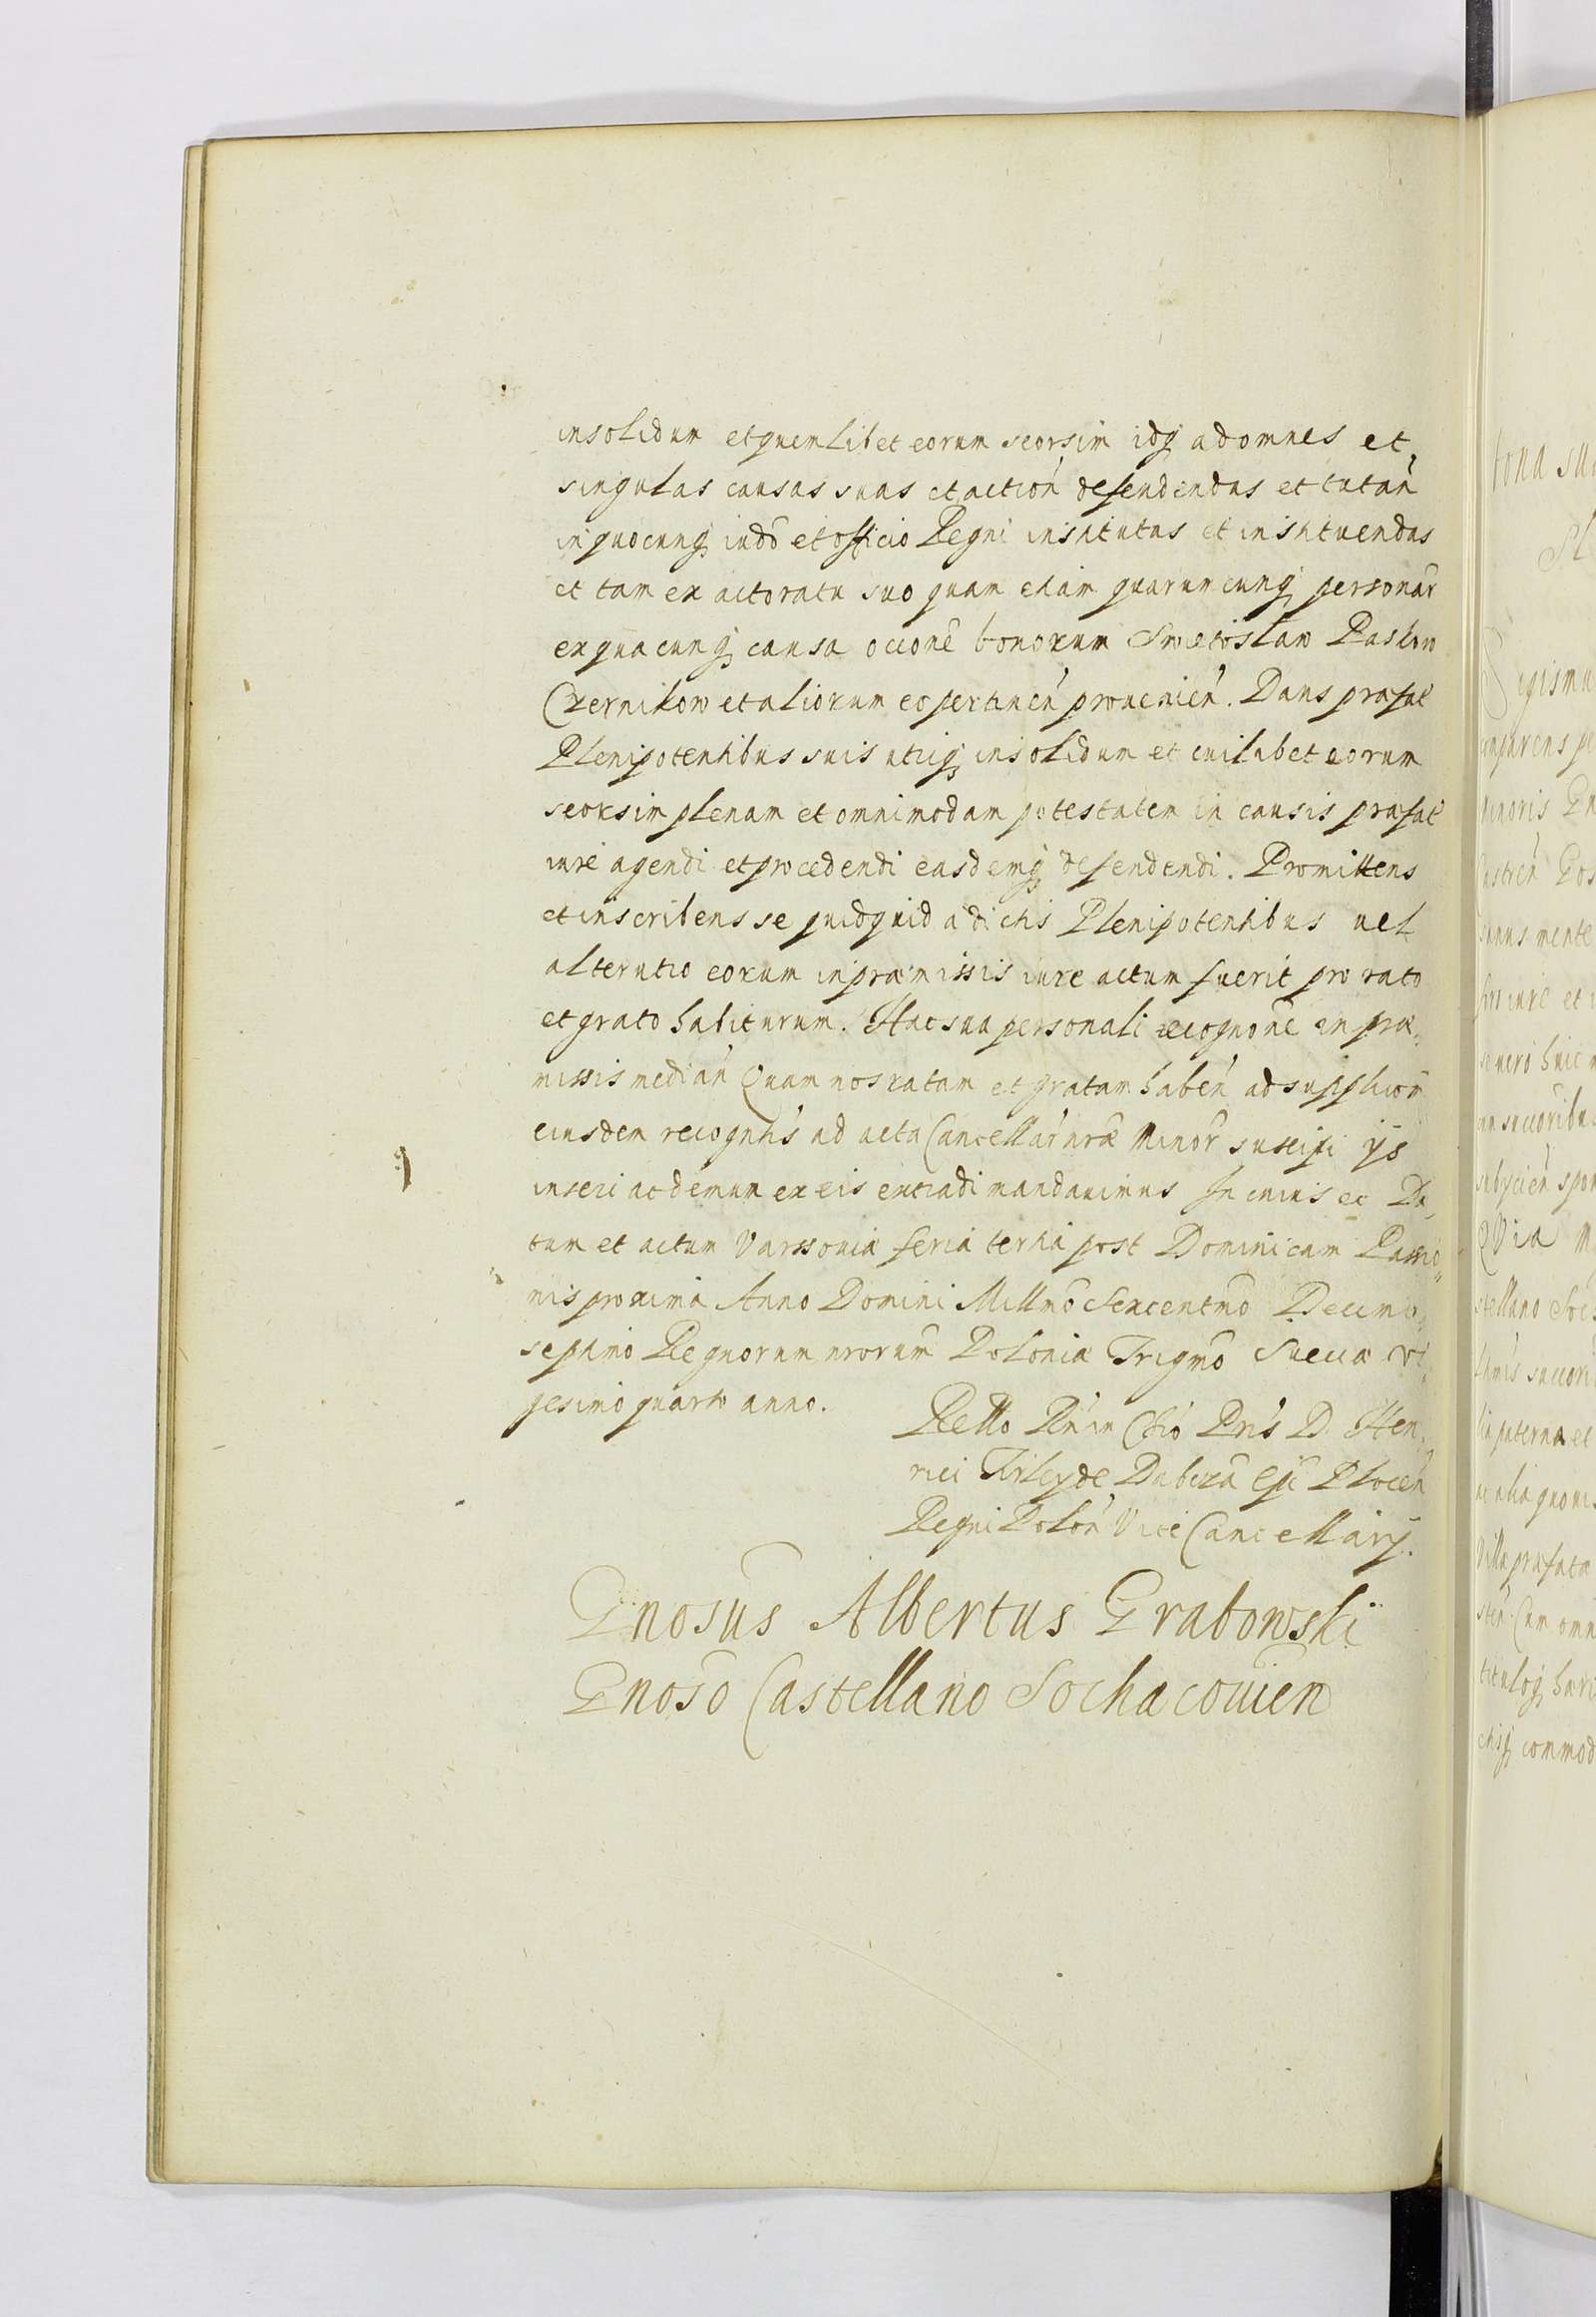 insolidum et quemlibet eorum seorsim idq ad omnes et
singulas causas suas et action defendendas et tutan
in quocunq iudo et officio Regni institutas et instituendas
et tam ex actoratu suo quam etiam quarumcunq personar
ex quacunq causa occione bonorum Swietoslaw Paskow
Czernikow et aliorum eo pertinen prouenien. Dans præfat
Plenipotentibus suis utriq insolidum et cuilibet eorum
seorsim plenam et omnimodam potestatem in causis præfat
iure agendi et procedendi easdemq defendendi. Promittens
et inscribens se quidquid a dictis Plenipotentibus uel
alterutro eorum in præmissis iure actum fuerit pro rato
et grato habiturum. Hac sua personali recognone in præ,,
missis median Quam nos ratam et gratam haben ad supplicon
eiusdem recognitis ad acta Cancellar nræ Minor suscipi ijs
inseri ac demum ex eis extradi mandauimus In cuius ec Da,,
tum et actum Varssouiæ feria tertia post Dominicam Passio,,
nis proxima Anno Domini Millmo Sexcentmo Decimo,,
septimo Regnorum nrorum Poloniæ Trigmo Sueciæ vi,,
gesimo quarto anno.
Rello Rdn in Chro Pris D. Hen,,
rici Firley de Dabrow Epi Plocen
Regni Polon Vice Cancellarij.
Gnosus Albertus Grabowski
Gnoso Castellano Sochacouien
tona sua
Sigismu
comparens pe
Minoris Gn
sanus mente
suo iure et
se uero huic
succoribus
subijcien spon
Quia M
stellano Soc
paterna et
ac alia quouis
Villæ præfatæ
Cum omni
tituloq hæri
commod